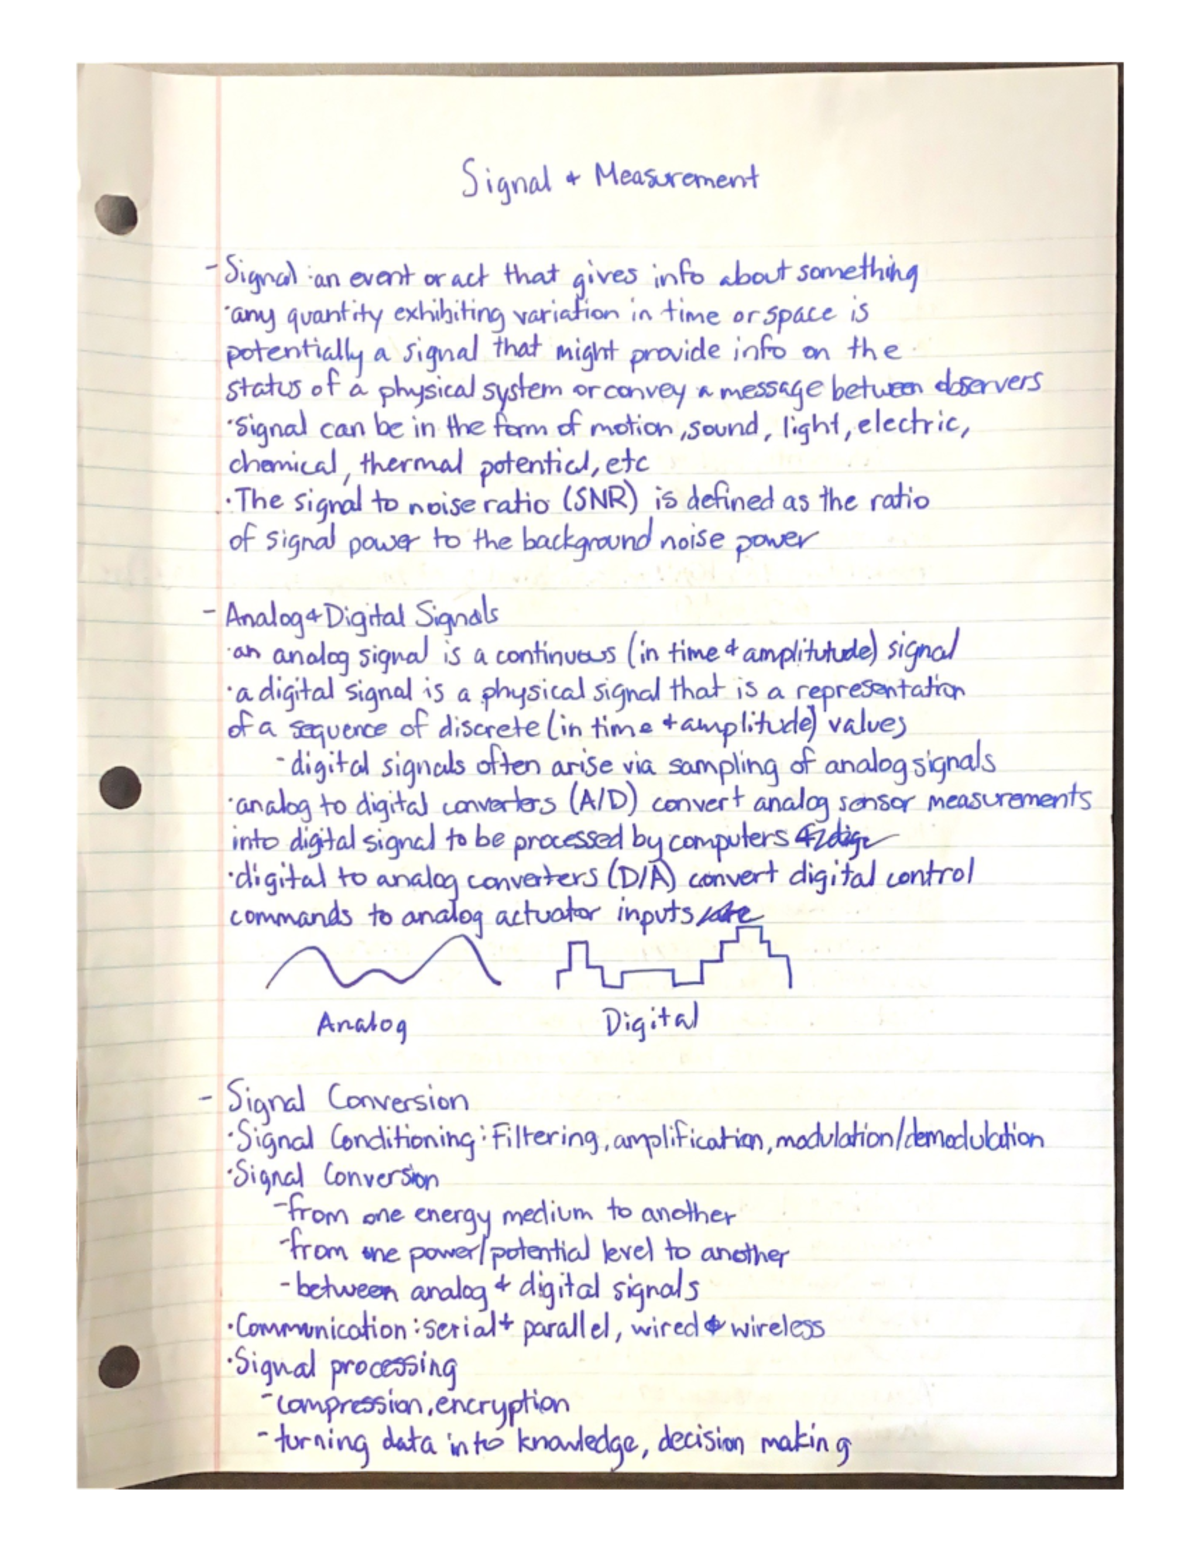 Signal + Measurement
- Signal : an event or act that gives info about something
· any quantity exhibiting variation in time or space is
potentially a signal that might provide info on the
status of a physical system or convey a message between observers
· signal can be in the form of motion, sound, light, electric,
chemical, thermal potential, etc
· The signal to noise ratio (SNR) is defined as the ratio
of signal power to the background noise power
- Analog + Digital Signals
· an analog signal is a continuous (in time + amplitutude) signal
· a digital signal is a physical signal that is a representation
of a sequence of discrete (in time + amplitude) values
- digital signals often arise via sampling of analog signals
· analog to digital converters (A/D) convert analog sensor measurements
into digital signal to be processed by computers
· digital to analog converters (D/A) convert digital control
commands to analog actuator inputs
Analog Digital
- Signal Conversion
· Signal Conditioning : Filtering, amplification, modulation/demodulation
· Signal Conversion
- from one energy medium to another
- from one power/potential level to another
- between analog + digital signals
· Communication : serial + parallel, wired + wireless
· Signal processing
- compression, encryption
- turning data into knowledge, decision making